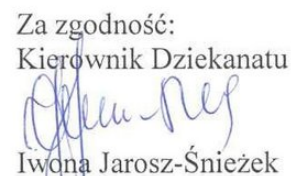 Za zgodność:
Kierownik Dziekanatu
Iwona Jarosz-Śnieżek